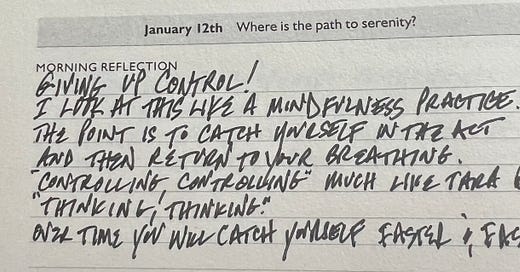 January 12th Where is the path to serenity?
MORNING REFLECTION
GIVING UP CONTROL!
I LOOK AT THIS LIKE A MINDFULNESS PRACTICE.
THE POINT IS TO CATCH YOURSELF IN THE ACT
AND THEN RETURN TO YOUR BREATHING.
"CONTROLLING, CONTROLLING" MUCH LIKE TARA
"THINKING, THINKING."
OVER TIME YOU WILL CATCH YOURSELF FASTER &